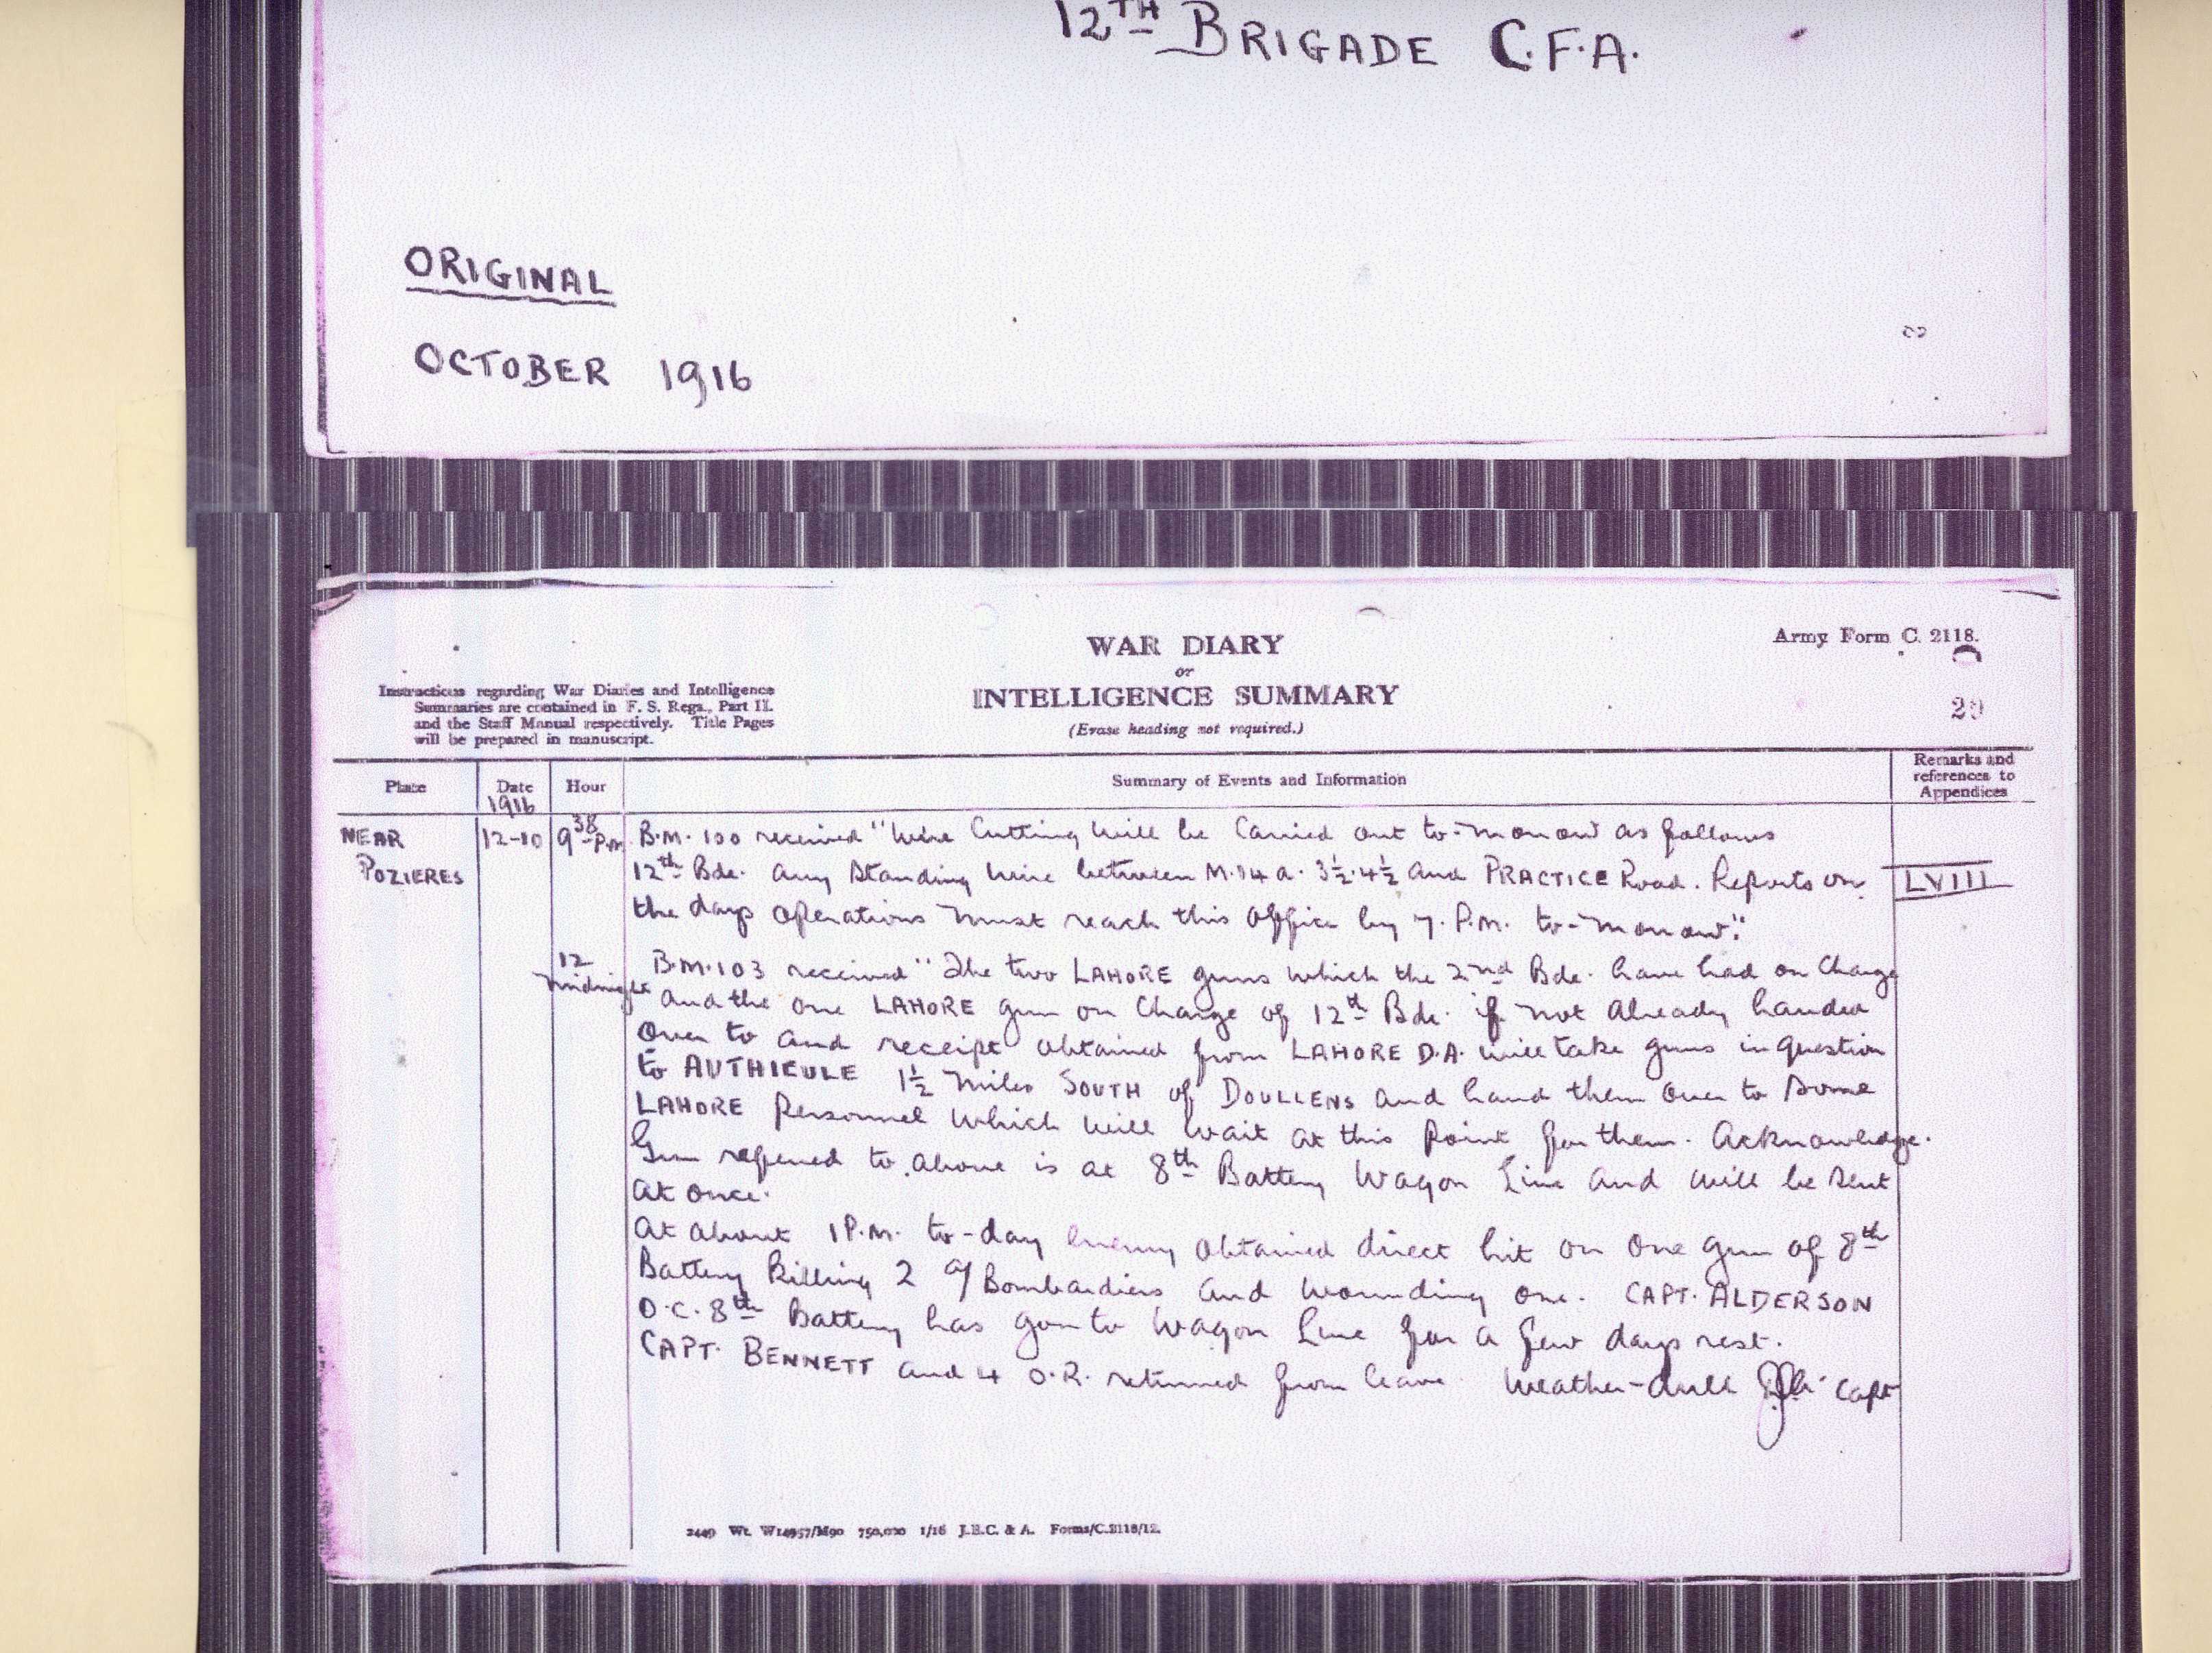 12TH BRIGADE C.F.A.
ORIGINAL
OCTOBER 1916
WAR DIARY
or
INTELLIGENCE SUMMARY
(Erase heading not required.)
Army Form C. 2118.
29
Instructions regarding War Diaries and Intelligence
Summaries are contained in F. S. Regs., Part II.
and the Staff Manual respectively. Title Pages
will be prepared in manuscript.
Place Date Hour Summary of Events and Information Remarks and references to Appendices
1916
NEAR POZIERES 12-10 9.38 P.m B.M. 100 received "Wire Cutting will be Carried out to-morrow as follows
12th Bde. any standing wire between M.14 a. 3½.4½ and PRACTICE Road. Reports on LVIII
the days operations must reach this office by 7. P.M. to-morrow."
12 midnight B.M. 103 received "The two LAHORE guns which the 2nd Bde. have had on Charge
and the one LAHORE gun on Charge of 12th Bde. if not already handed
over to and receipt obtained from LAHORE D.A. will take guns in question
to AUTHIEULE 1½ miles SOUTH of DOULLENS and hand them over to some
LAHORE Personnel which will wait at this point for them. Acknowledge.
Gun referred to above is at 8th Battery Wagon Line and will be sent
at once.
At about 1 P.M. to-day enemy obtained direct hit on one gun of 8th
Battery killing 2 a/Bombardiers and wounding one. CAPT. ALDERSON
O.C. 8th Battery has gone to Wagon Line for a few days rest.
CAPT. BENNETT and 4 O.R. returned from leave. Weather-dull Capt
2449 Wt. W14957/M90 750,000 1/16 J.B.C. & A. Forms/C.2118/12.